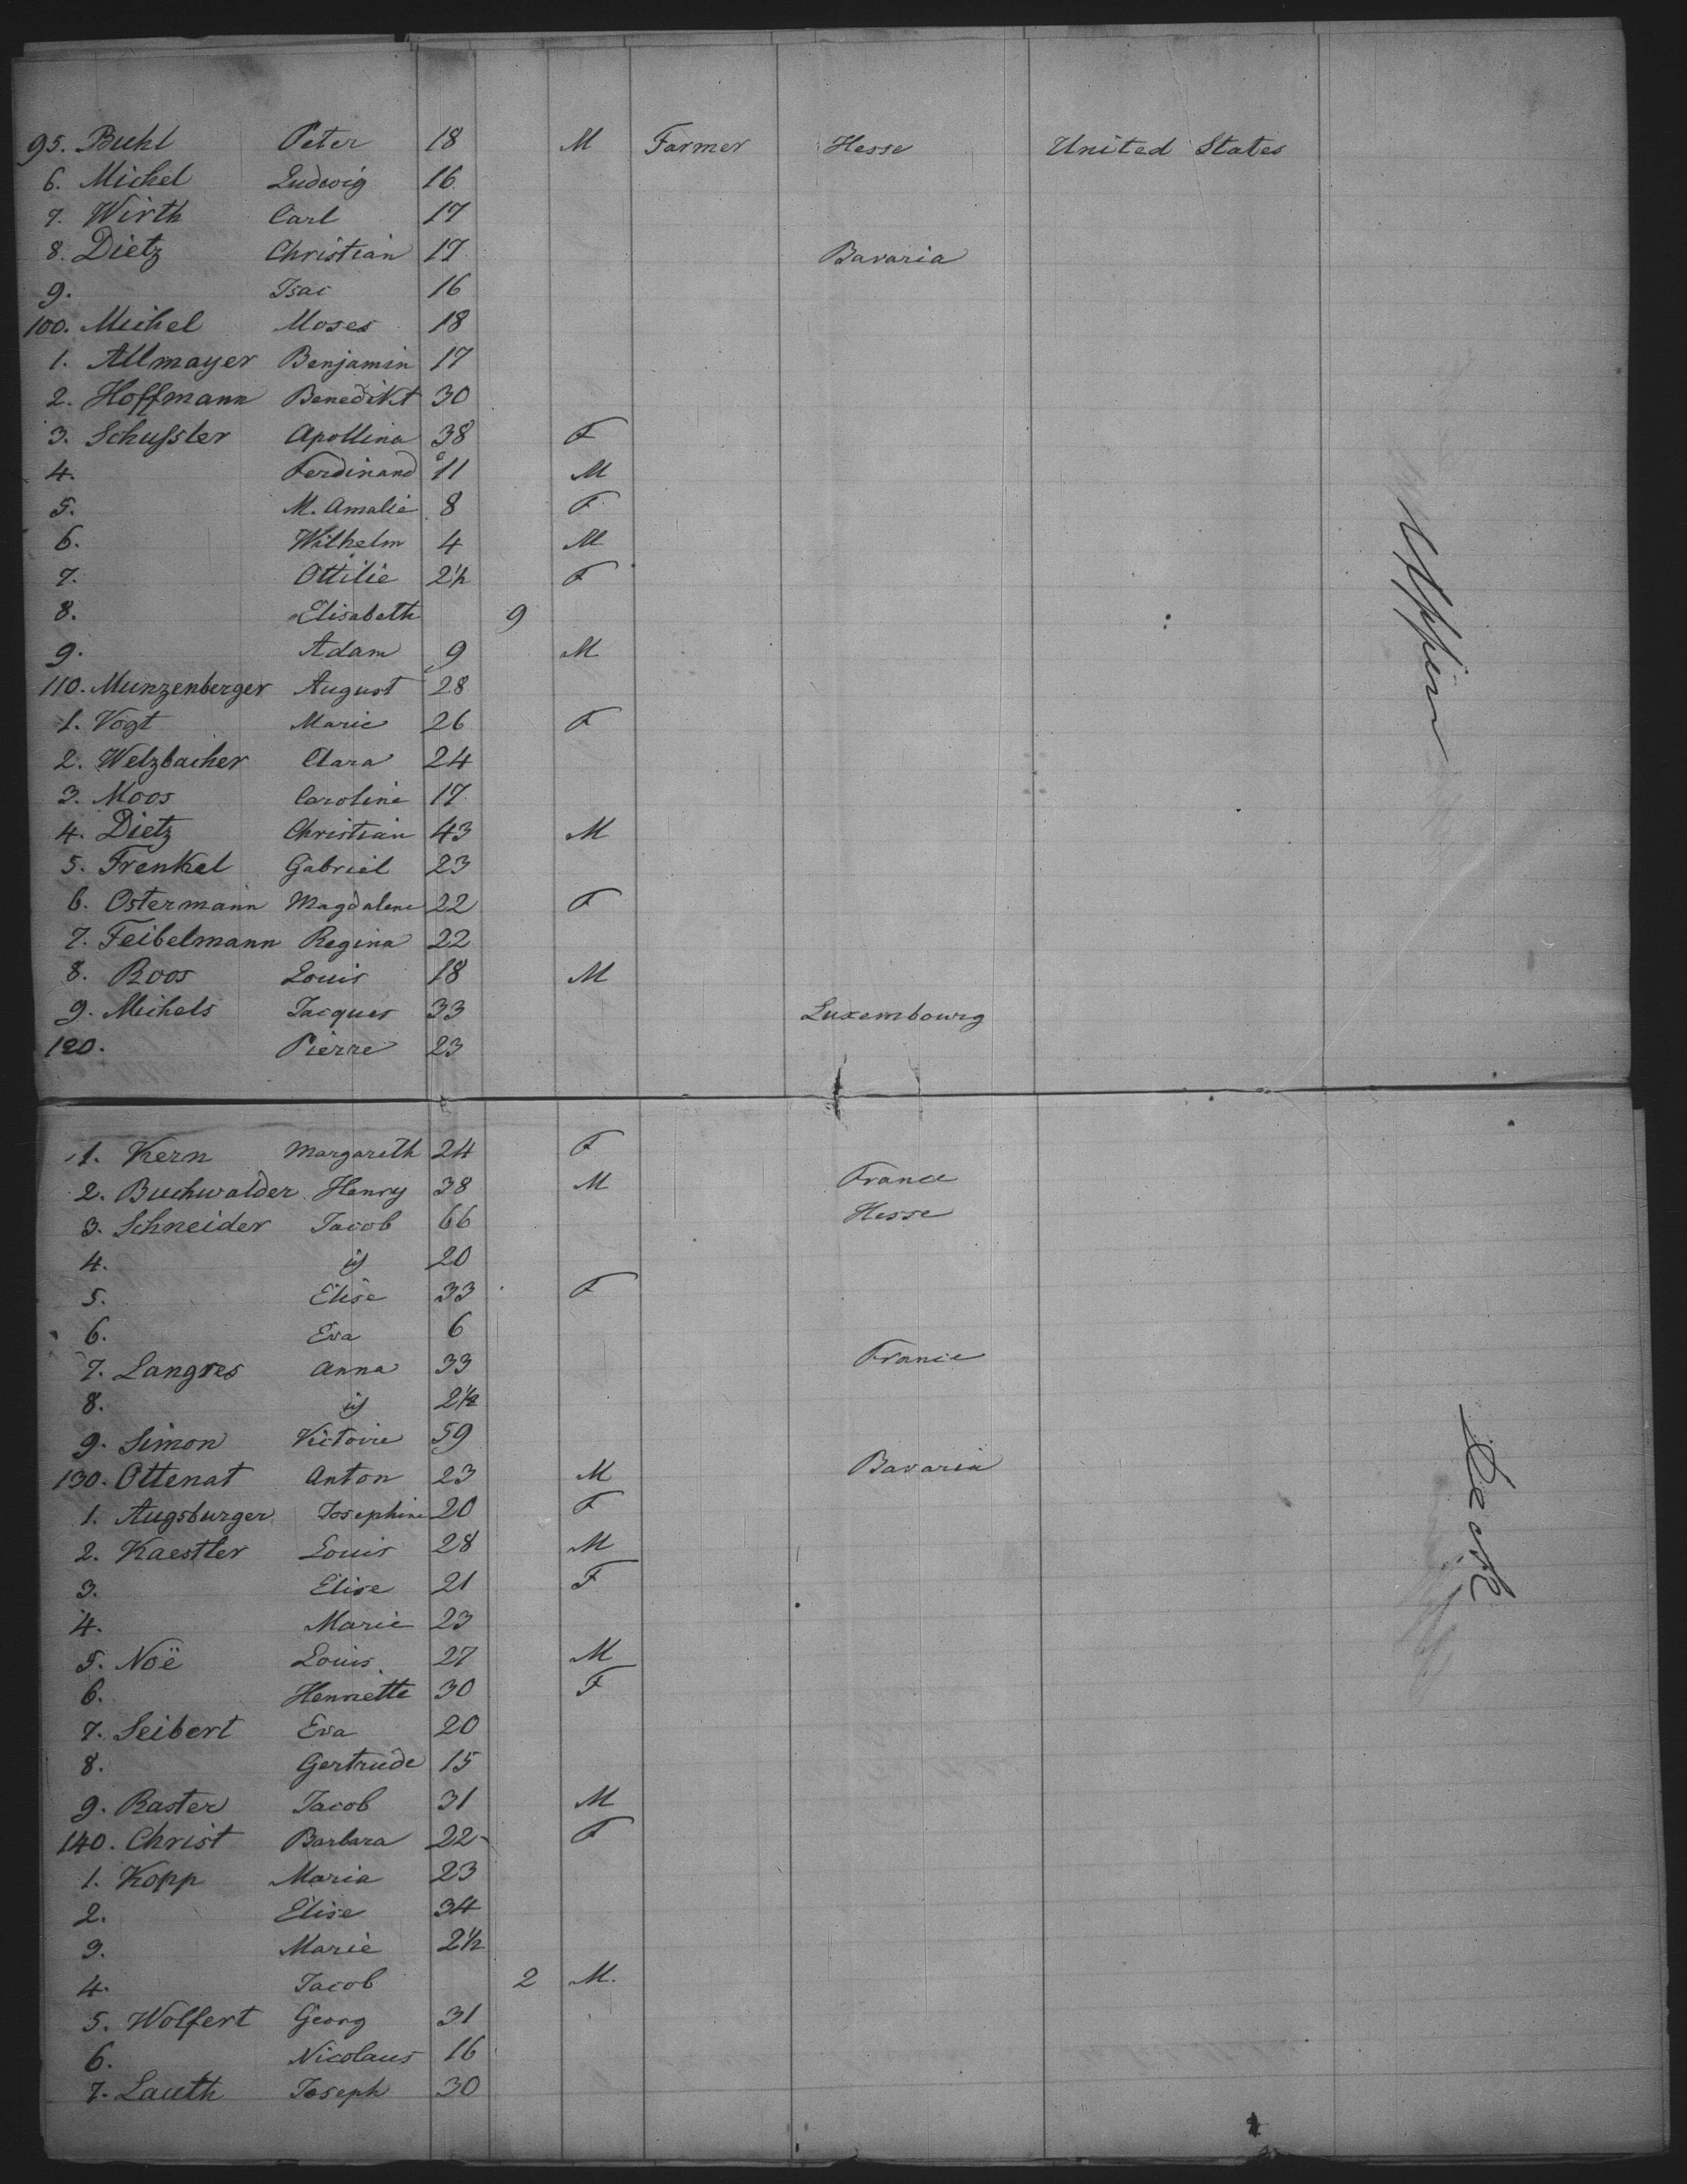 95. Buhl Peter 18 M Farmer Hesse United States
6. Michel Ludwig 16
7. Wirth Carl 17
8. Dietz Christian 17 Bavaria
9. Isac 16
100. Michel Moses 18
1. Allmayer Benjamin 17
2. Hoffmann Benedikt 30
3. Schußler Apollina 38 F
4. Ferdinand 11 M
5. M. Amalie 8 F
6. Wilhelm 4 M
7. Ottilie 2½ F
8. Elisabeth 9
9. Adam 9 M
110. Munzenberger August 28
1. Vogt Marie 26 F
2. Welzbacher Clara 24
3. Moos Caroline 17
4. Dietz Christian 43 M
5. Frenkel Gabriel 23
6. Ostermann Magdalene 22 F
7. Feibelmann Regina 22
8. Roos Louis 18 M
9. Michels Jacques 33 Luxembourg
120. Pierre 23
Upper
1. Kern Margareth 24 F
2. Buchwalder Henry 38 M France
3. Schneider Jacob 66 Hesse
4. id 20
5. Elise 33 F
6. Eva 6
7. Langres Anna 33 France
8. id 2½
9. Simon Victoire 59
130. Ottenat Anton 23 M Bavaria
1. Augsburger Josephine 20 F
2. Kaestler Louis 28 M
3. Elise 21 F
4. Marie 23
5. Noë Louis 27 M
6. Henriette 30 F
7. Seibert Eva 20
8. Gertrude 15
9. Raster Jacob 31 M
140. Christ Barbara 22 F
1. Kopp Maria 23
2. Elise 34
3. Marie 2½
4. Jacob 2 M.
5. Wolfert Georg 31
6. Nicolaus 16
7. Lauth Joseph 30
Deck